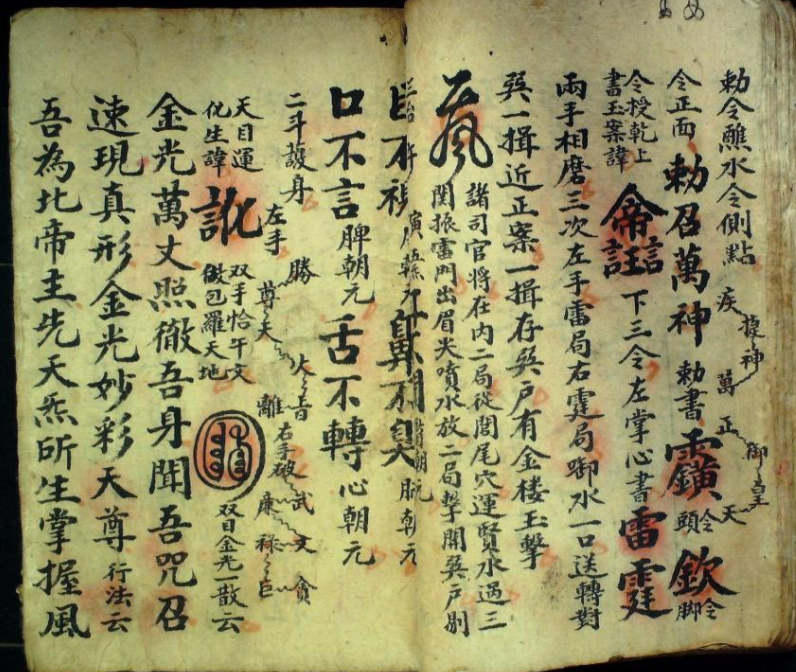 勅令蘸水令側點
令正面勅召萬神勅書 令頭 欽 令脚
令授乾上
書玉案諱
下三令左掌心書雷霆
兩手相磨三次左手雷局右霆局啣水一口送轉對
巽一揖近正案一揖存巽戶有金楼玉擊
諸司官将在内二局從閭尾穴運腎水過三
関振雷門出眉尖噴水放二局擊開巽戶剔
鼻不臭
口不言脾朝元舌不轉心朝元
二斗護身 左手
勝
尊 夫
火 音
離 右手破武文貪
廉祿巨
天目運
化生諱
双手恰午文
做包羅天地
双目金光一散云
金光萬丈照徹吾身聞吾咒召
速現真形金光妙彩天尊行法云
吾為北帝主先天炁所生掌握風